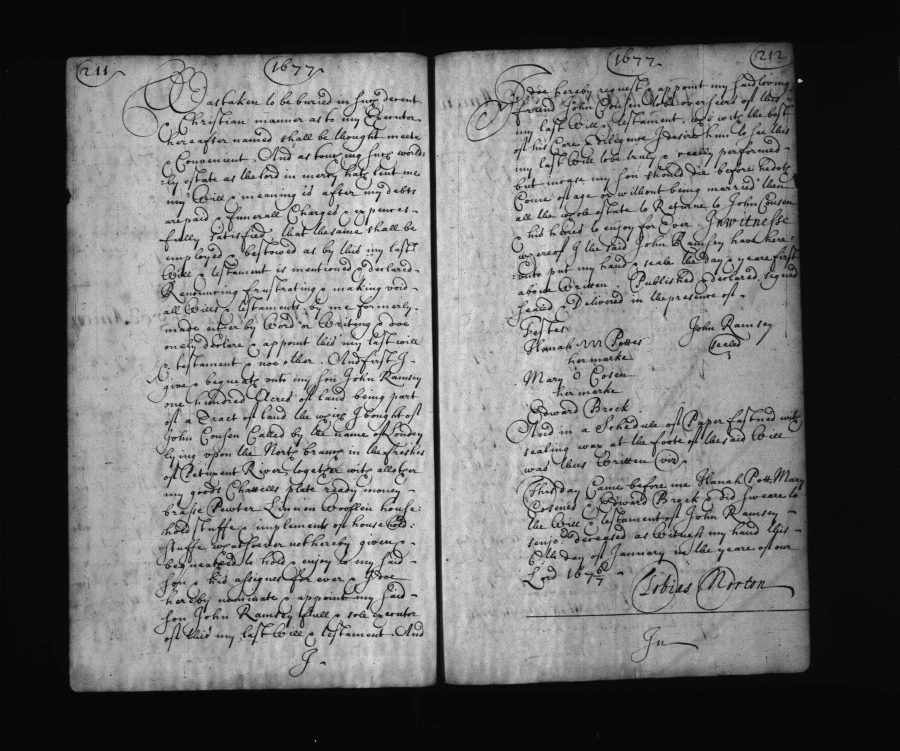 211
1677
Was taken to be buried in such decent
Christian manner as to my Executor
hereafter named shall be thought meete
& Convenient. And as touching such world=
ly estate as the lord in mercy hath lent me
my Will & meaning is after my debts
are paid & funerall Charges & expences
fully satisfied that the same shall be
employed & bestowed as by this my last
Will & testament is mentioned & declared
Renouncing frustrating & making void
all Wills & testaments by me formerly
made either by Word or Writing & doe
onely declare & appoint this my last will
& testament & noe other. And first I
give & bequeath unto my son John Ramsey
one hundred Acres of land being part
of a Tract of land the which I bought of
John Cousen Called by the name of
lying upon the North branch in the freshes
of Petuxent River together with all other
my goods Chattells plate ready money
brasse Pewter Linnen Woollen house=
hold stuffe & implements of houshold
stuffe whatsoever not hereby given &
bequeathed to hold & enjoy to my said
son & his assignes for ever & I doe
hereby nominate & appoint my said
son John Ramsey full & sole executor
of this my last Will & testament. And
I
1677
212
I doe hereby request & appoint my said loving
friend John Cousen overseer of this
my last Will & testament, who with the best
of his Care & diligence I desire him to see this
my last Will to be truly & really performed
but incase my son should die before he doth
Come of age or without being married then
all the whole estate to Returne to John Cousen
& his heires to enjoy for Ever. In witnesse
whereof I the said John Ramsey have here=
unto put my hand & seale the day & yeare first
above Written. Published & declared, signed
sealed & Delivered in the presence of
Testes
John Ramsey
Hanah M Pottes
sealed
her marke
Mary O Cosen
her marke
Edward Brock
And in a Schedule of Paper fastned with
sealing wax at the foote of the said Will
was thus Written vid
This day Came before me Hanah Pott, Mary
Cosenes & Edward Brock & did sweare to
the Will & testament of John Ramsey
senjo deceased as Witness my hand this
6th day of January in the yeare of our
Lord 1676/7
Tobias Norton
In